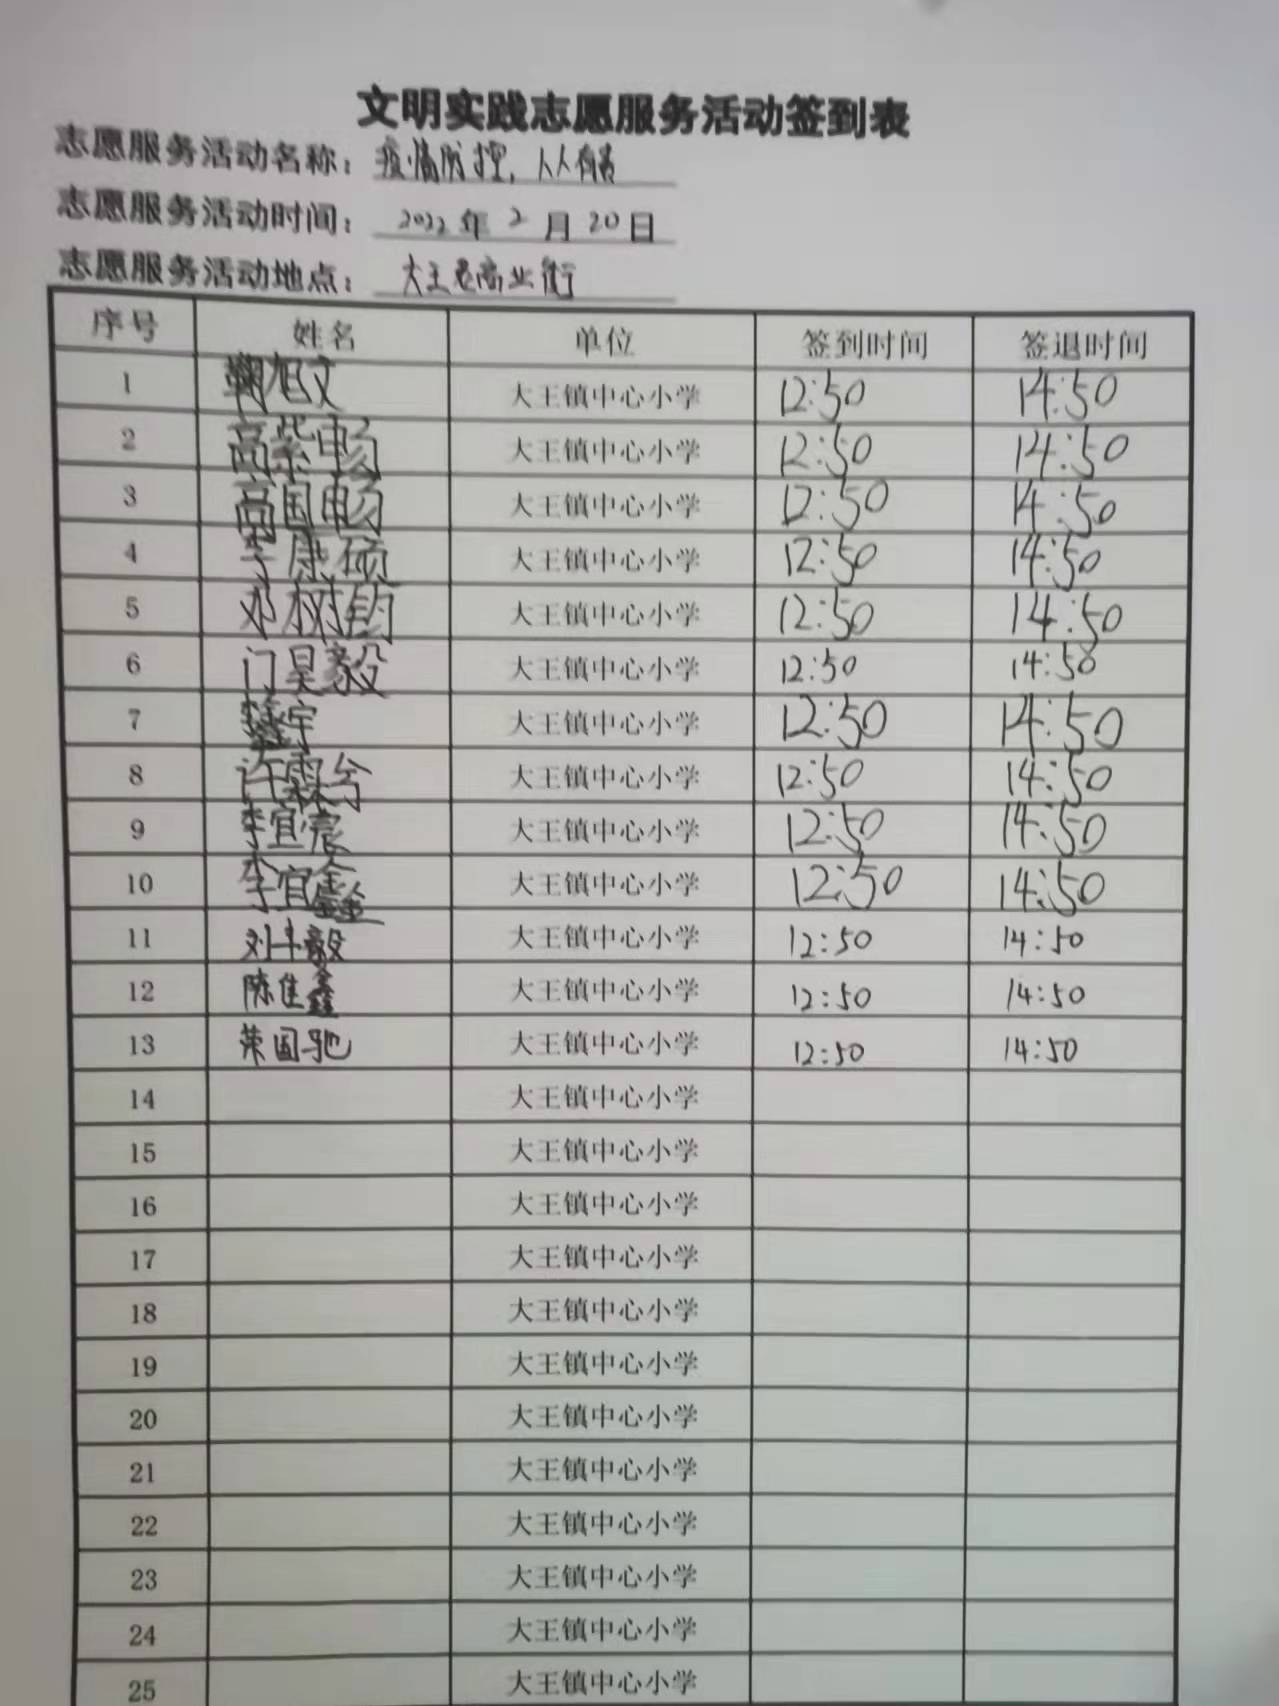 文明实践志愿服务活动签到表
志愿服务活动名称：疫情防控，人人有责
志愿服务活动时间：2022年2月20日
志愿服务活动地点：大王 商业街
序号 姓名 单位 签到时间 签退时间
1 鞠旭文 大王镇中心小学 12:50 14:50
2 高紫畅 大王镇中心小学 12:50 14:50
3 高国畅 大王镇中心小学 12:50 14:50
4 李康硕 大王镇中心小学 12:50 14:50
5 邓树钧 大王镇中心小学 12:50 14:50
6 门昊毅 大王镇中心小学 12:50 14:50
7 宇 大王镇中心小学 12:50 14:50
8 许霖兮 大王镇中心小学 12:50 14:50
9 李宜宸 大王镇中心小学 12:50 14:50
10 李宜鑫 大王镇中心小学 12:50 14:50
11 刘丰毅 大王镇中心小学 12:50 14:50
12 陈佳鑫 大王镇中心小学 12:50 14:50
13 荣国驰 大王镇中心小学 12:50 14:50
14 大王镇中心小学
15 大王镇中心小学
16 大王镇中心小学
17 大王镇中心小学
18 大王镇中心小学
19 大王镇中心小学
20 大王镇中心小学
21 大王镇中心小学
22 大王镇中心小学
23 大王镇中心小学
24 大王镇中心小学
25 大王镇中心小学